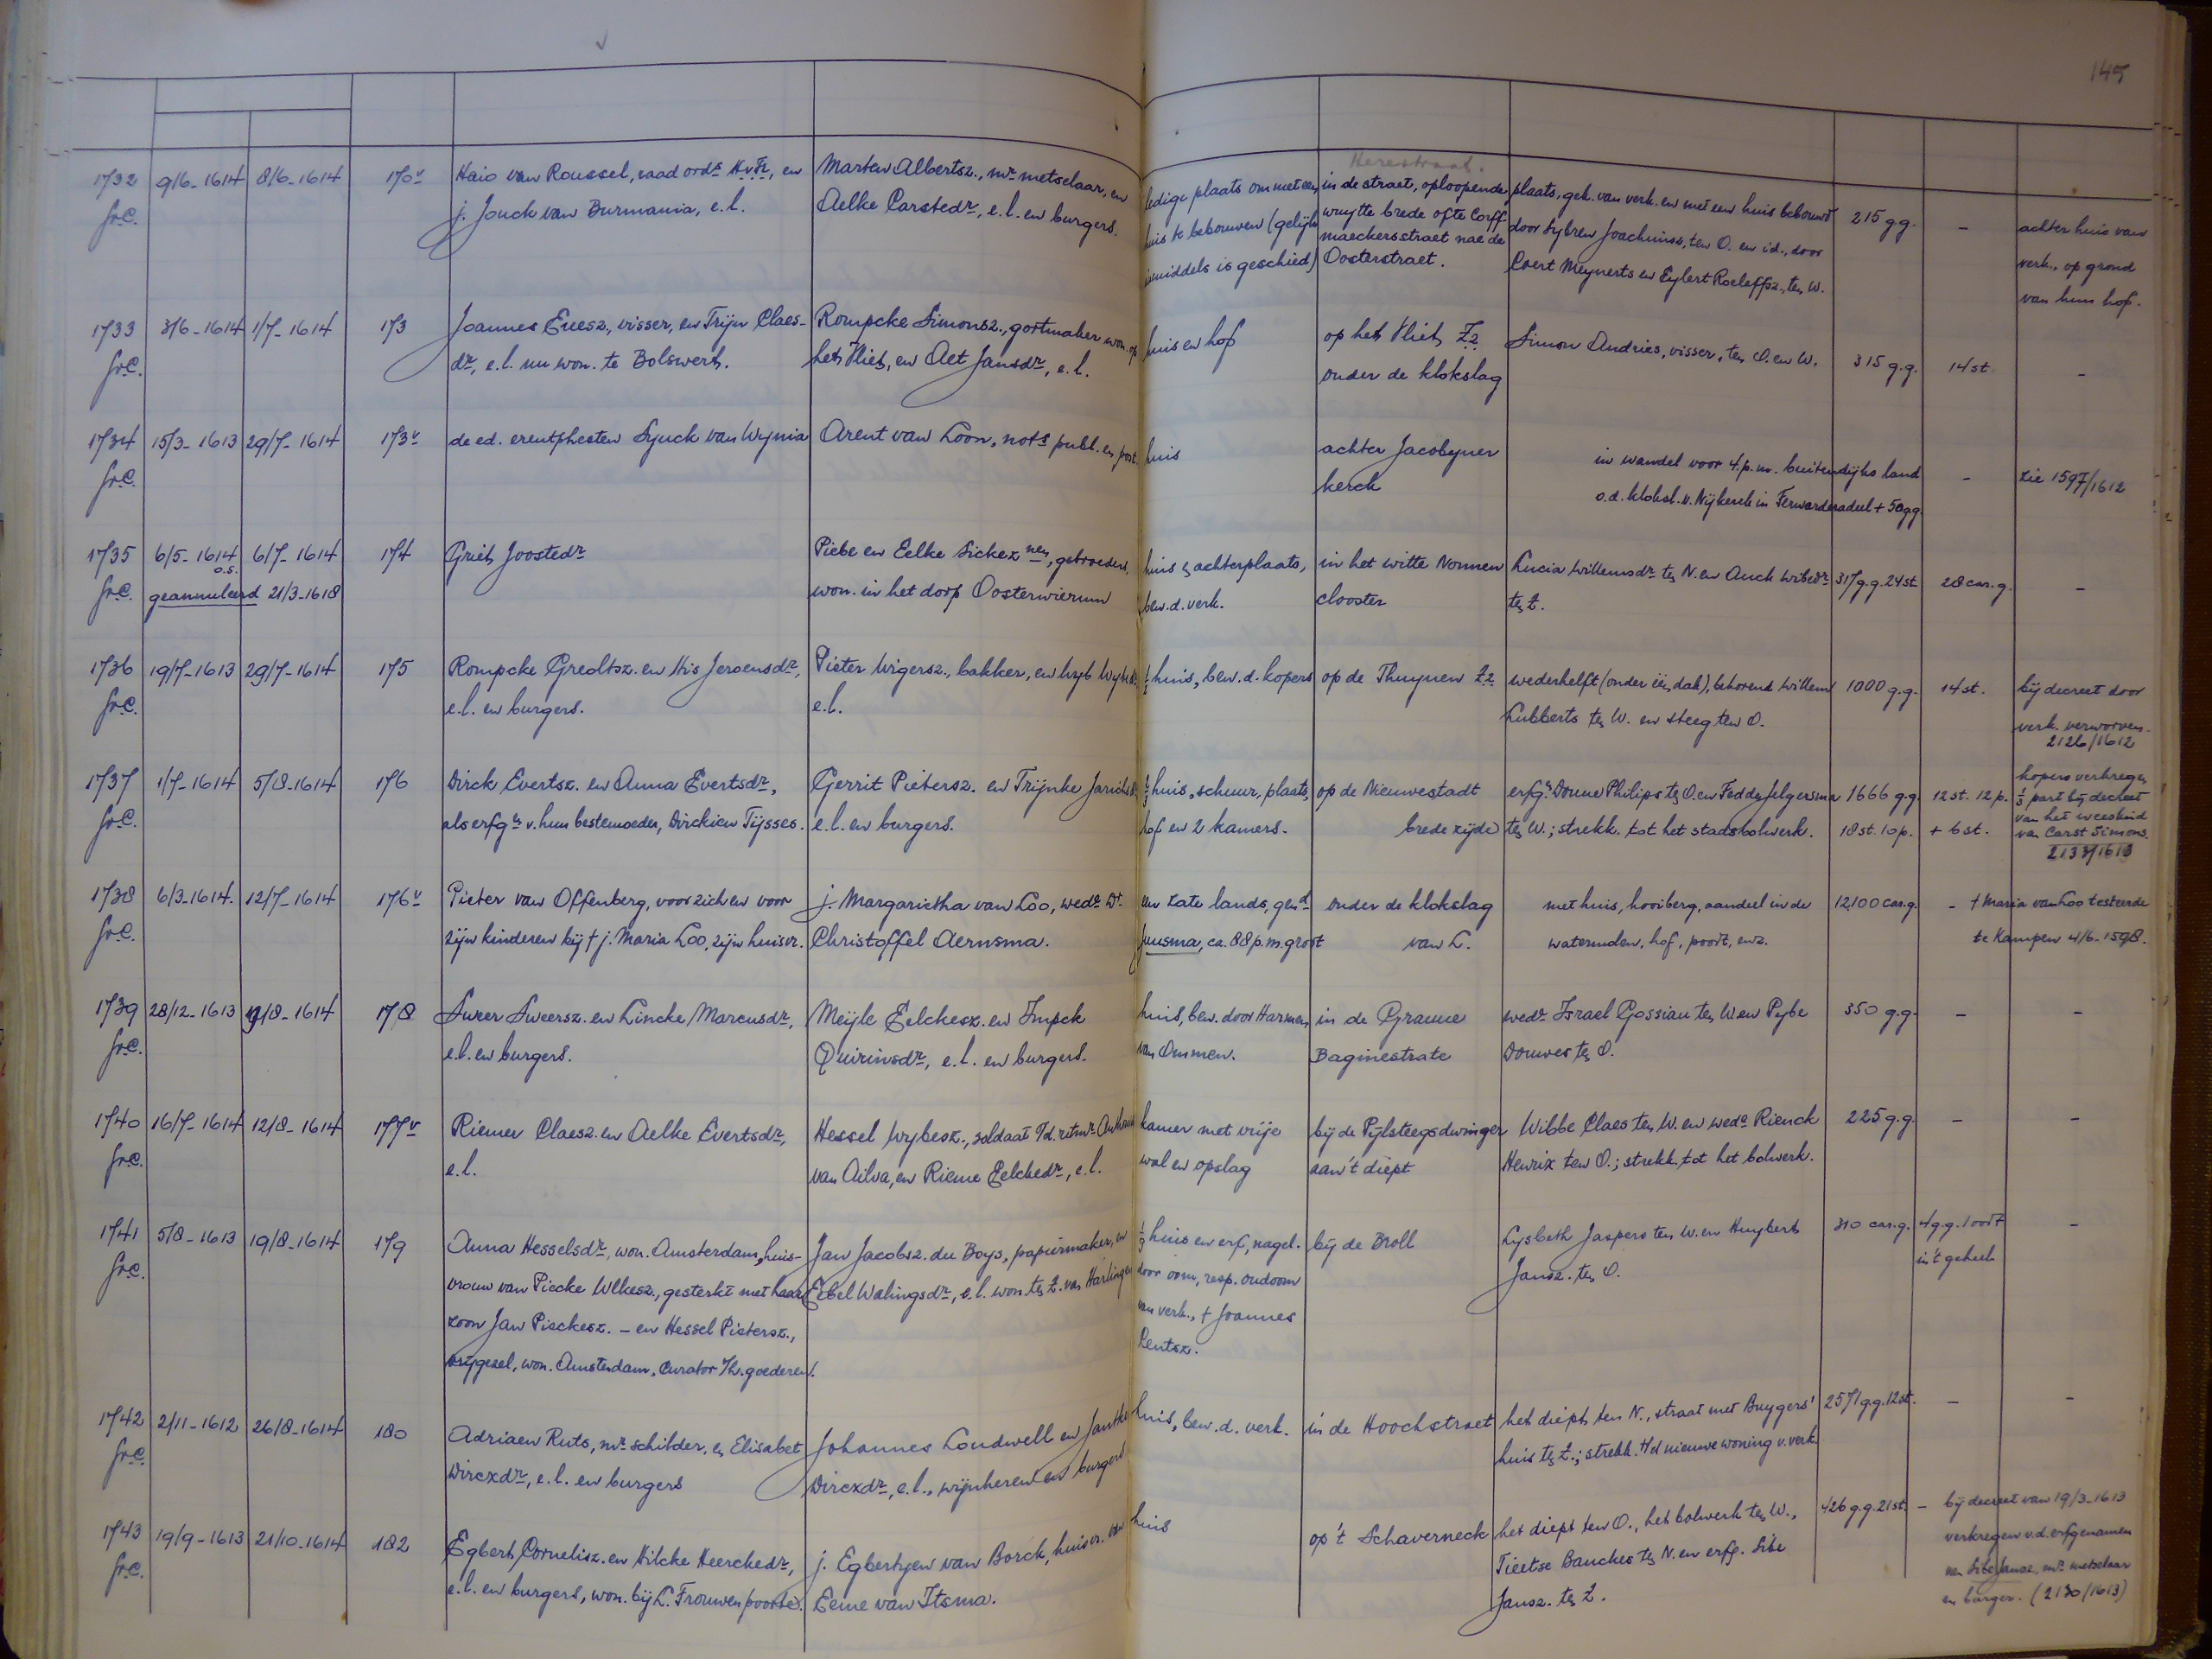 145
Herestraat.
1732 9/6-1614 8/6-1614 170v Haio van Roussel, raad ordr HvFr, en Marten Albertsz., mr metselaar, en ledige plaats om met een in de straet, oploopende plaats, gek. van verk. en met een huis bebouwd 215 g.g. - achter huis van
fr.C. j. Jouck van Burmania, e.l. Aelke Carstedr, e.l. en burgers. huis te bebouwen (gelijk wuytte brede ofte Corff- door Sybren Joachims, ten O. en id., door verk., op grond
inmiddels is geschied) maeckersstraet nae de Coert Meynerts en Eylert Roeleffsz., ten W. van hun hof.
Oosterstraet.
1733 3/6-1614 1/7-1614 173 Joannes Euesz., visser, en Trijn Claes- Rompcke Simonsz., gortmaker won. op huis en hof op het Vliet Z.z. Simon Andries, visser, ten O. en W. 315 g.g. 14 st. -
fr.C. dr, e.l. nu won. te Bolswert. het Vliet, en Aet Jansdr, e.l. onder de klokslag
1734 15/3-1613 29/7-1614 173v de ed. erentphesten Sjuck van Wynia Arent van Loon, nots publ. en post. huis achter Jacobyner in wandel voor 4 p.m. buitendijks land - zie 1597/1612
fr.C. kerck o.d. kloksl. v. Nijkerk in Ferwarderadeel + 50 g.g.
1735 6/5-1614 o.s. 6/7-1614 174 Griet Joostedr Piebe en Eelke Sickeznen, gebroeders, huis en achterplaats, in het witte Nonnen Lucia Willemsdr ten N. en Anck Wibedr 317 g.g. 24 st. 28 car.g. -
fr.C. geannuleerd 21/3-1618 won. in het dorp Oosterwierum bew. d. verk. clooster ten Z.
1736 19/7-1613 29/7-1614 175 Rompcke Gredltsz. en His Jeroensdr, Pieter Wigersz., bakker, en Wyb Wybedr, ½ huis, bew. d. kopers op de Thuynen Z.z. wederhelft (onder één dak), behorend Willem 1000 g.g. 14 st. bij decreet door
fr.C. e.l. en burgers. e.l. Lubberts ten W. en steeg ten O. verk. verworven.
2126/1612
1737 1/7-1614 5/8-1614 176 Dirck Evertsz. en Anna Evertsdr, Gerrit Pietersz. en Trijnke Jarichsdr, ⅓ huis, schuur, plaats, op de Nieuwestadt erfgn Douue Philips ten O. en Fedde Jelgersma 1666 g.g. 12 st. 12 p. kopers verkregen
fr.C. als erfgn v. hun bestemoeder, Dirckien Tijsses. e.l. en burgers. hof en 2 kamers. brede zijde ten W.; strekk. tot het stadsbolwerk. 18 st. 10 p. + 6 st. ⅓ part bij decreet
van het weeskind
van Carst Simons.
2133/1613
1738 6/3-1614. 12/7-1614 176v Pieter van Offenberg, voor zich en voor j. Margarietha van Loo, wedr Dr. een zate lands, gend onder de klokslag met huis, hooiberg, aandeel in de 12100 car.g. - † Maria van Loo testeerde
fr.C. zijn kinderen bij † j. Maria Loo, zijn huisvr. Christoffel Aernsma. Juusma, ca. 88 p.m. groot van L. watermolen, hof, poort, enz. te Kampen 4/6-1598.
1739 28/12-1613 19/8-1614 178 Sweer Sweersz. en Lincke Marcusdr, Meijle Eelckesz. en Impck huis, bew. door Harmen in de Grauue wedr Israel Gossian ten W. en Pybe 350 g.g. - -
fr.C. e.l. en burgers. Quirinsdr, e.l. en burgers. van Ommen. Baginestrate Douwes ten O.
1740 16/7-1614 12/8-1614 177v Riemer Claesz. en Aelke Evertsdr, Hessel Wybesz., soldaat o/d. ritmr Anthonis kamer met vrije bij de Pijlsteegsdwinger Wibbe Claes ten W. en wede Rienck 225 g.g. - -
fr.C. e.l. van Ailva, en Rieme Eelckedr, e.l. wal en opslag aan 't diept Henrix ten O.; strekk. tot het bolwerk.
1741 5/8-1613 19/8-1614 179 Anna Hesselsdr, won. Amsterdam, huis- Jan Jacobsz. du Boys, papiermaker, en ⅓ huis en erf, nagel. bij de Broll Lysbeth Jaspers ten W. en Huybert 310 car.g. 4 g.g. 1 oort -
fr.C. vrouw van Piecke Ulkesz., gesterkt met haar Eebel Walingsdr, e.l. won. ten Z. van Harlingen door oom, resp. oudoom Jansz. ten O. in 't geheel
zoon Jan Pieckesz. - en Hessel Pietersz., van verk., † Joannes
vrijgezel, won. Amsterdam, Curator o/h. goederen. Centsz.
1742 2/11-1612 26/8-1614 180 Adriaen Ruts, mr schilder, en Elisabet Johannes Loudwell en Jantke huis, bew. d. verk. in de Hoochstraet het diept ten N., straat met Buygers' 2571 g.g. 12 st. - -
fr.C. Dircxdr, e.l. en burgers Dircxdr, e.l., wijnheren en burgers huis ten Z.; strekk. t/d nieuwe woning v. verk.
1743 19/9-1613 21/10-1614 182 Egbert Cornelisz. en Hilcke Heerckedr, j. Egbertyen van Borck, huisvr. van huis op 't Schaverneck het diept ten O., het bolwerk ten W., 426 g.g. 21 st. - bij decreet van 19/3-1613
fr.C. e.l. en burgers, won. bij L. Frouwen poorte. Eeme van Itsma. Tieetse Bauckes ten N. en erfg. Sibe verkregen v.d. erfgenamen
Jansz. ten Z. van Sibe Jansz, mr metselaar
en burger. (2130/1613)